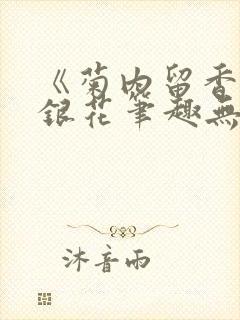 《菊内留香
銀花筆趣無
沐音雨